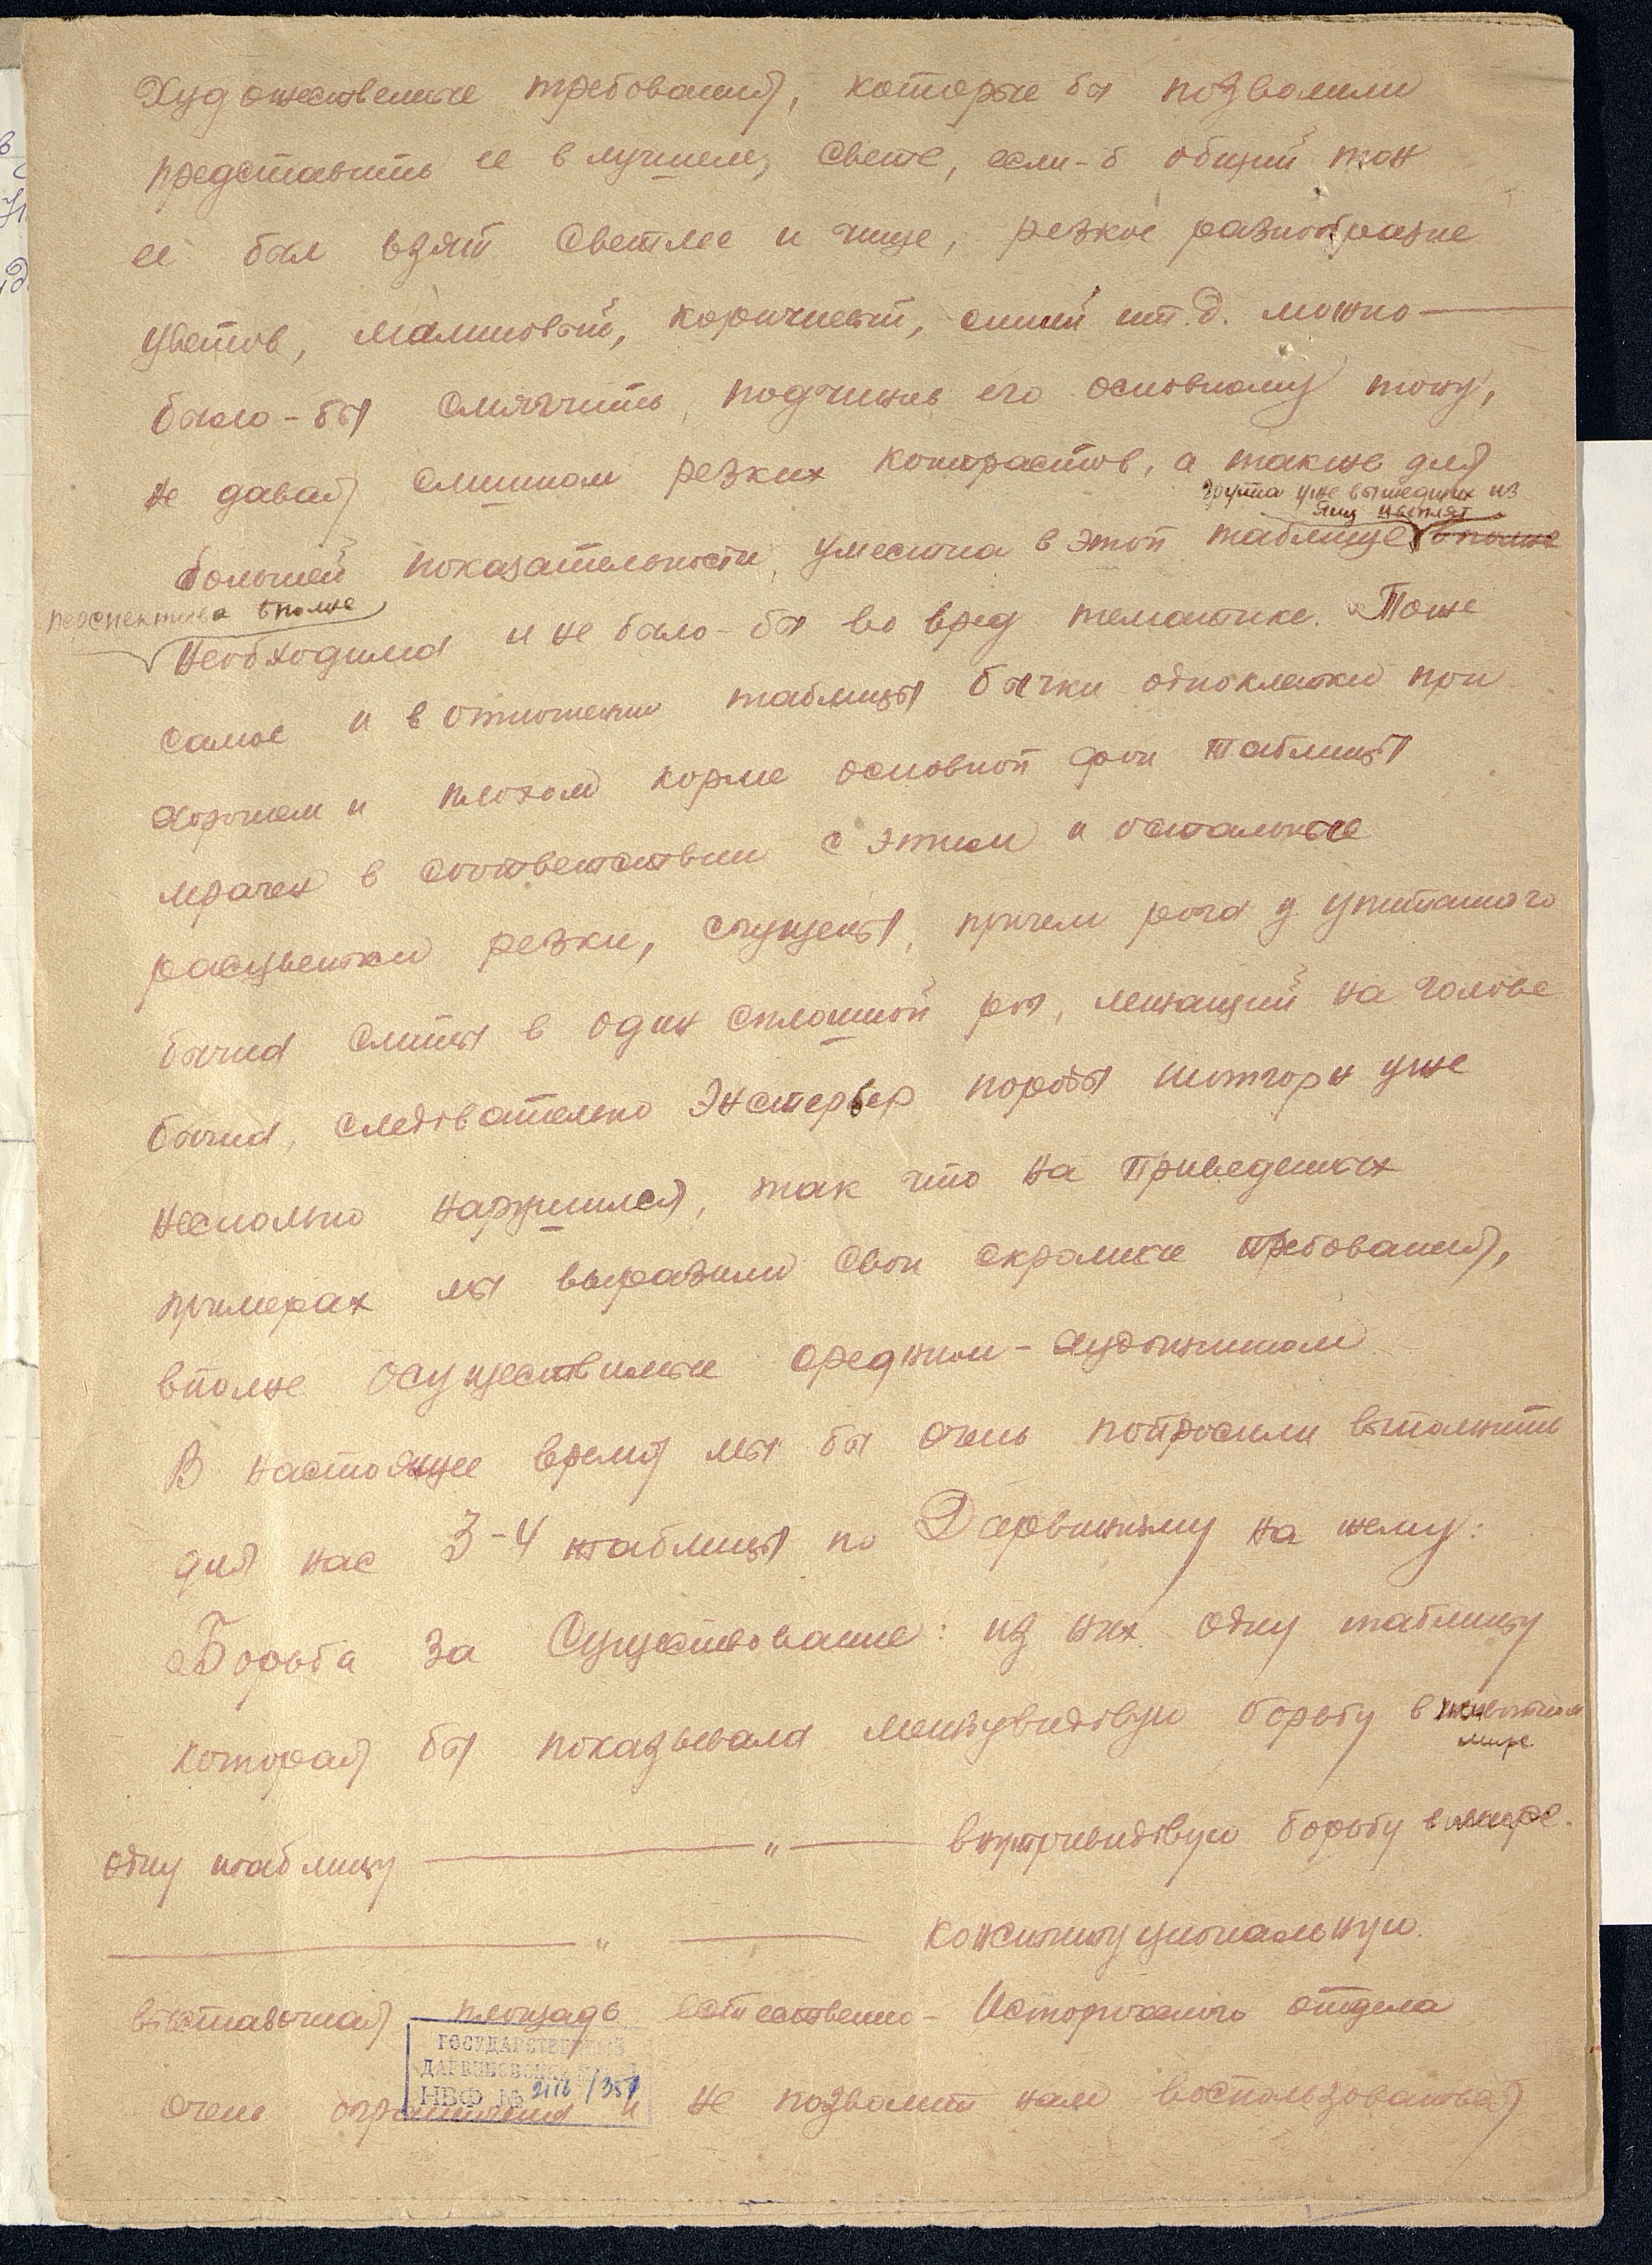 Художественные требования, которые бы позволили
представить ее в лучшем, свете, если-б общий тон
ее был взят светлее и чище, резкое разнообразие
цветов, малиновый, коричневый, синий и т. д. можно —
было-бы смягчить, подчинив его основному тону,
не давая слишком резких контрастов, а также для
группа уже вышедших из
яиц цыплят
большей показательности, уместна в этой таблице вполне
перспектива вполне
необходима и не было-бы во вред тематике. Тоже
самое и в отношении таблицы бычки однолетки при
хорошем и плохом корме основной фон таблицы
мрачен в соответствии с этим и остальные
расцветки резки, сгущены, причем рога у упитанного
бычка слиты в один сплошной рог, лежащий на голове
бычка, следовательно Экстерьер породы шотгорн уже
несколько нарушился, так что на приведенных
примерах мы выразили свои скромные требования,
вполне осуществимые средним-художником
В настоящее время мы бы очень попросили выполнить
для нас 3-4 таблицы по Дарвинизму на тему:
Борьба за Существование: из них одну таблицу
которая бы показывала межвидовую борьбу в животном
мире
одну таблицу — " — внутривидовую борьбу в мире.
— " — конституциональную.
выставочная площадь естественно-Исторического отдела
очень ограничена и не позволит нам воспользоваться
ГОСУДАРСТВЕННЫЙ
ДАРВИНОВСКИЙ МУЗЕЙ
НВФ № 2116/387